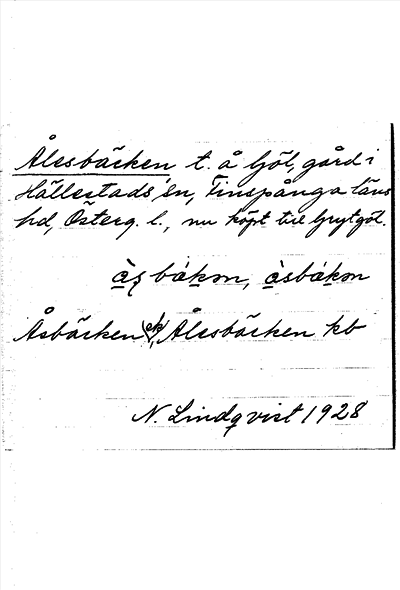 Ålesbäcken t. å Göl, gård i
Hällestads sn, Finspånga läns
hd, Österg. l., nu köpt till Grytgöl.
Åsbäcken Ålesbäcken kb
N. Lindqvist 1928